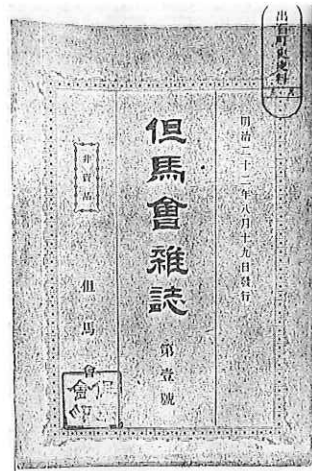 出石町史史料
明治二十二年八月十九日發行
但馬會雜誌 第壹號
非賣品
但馬會